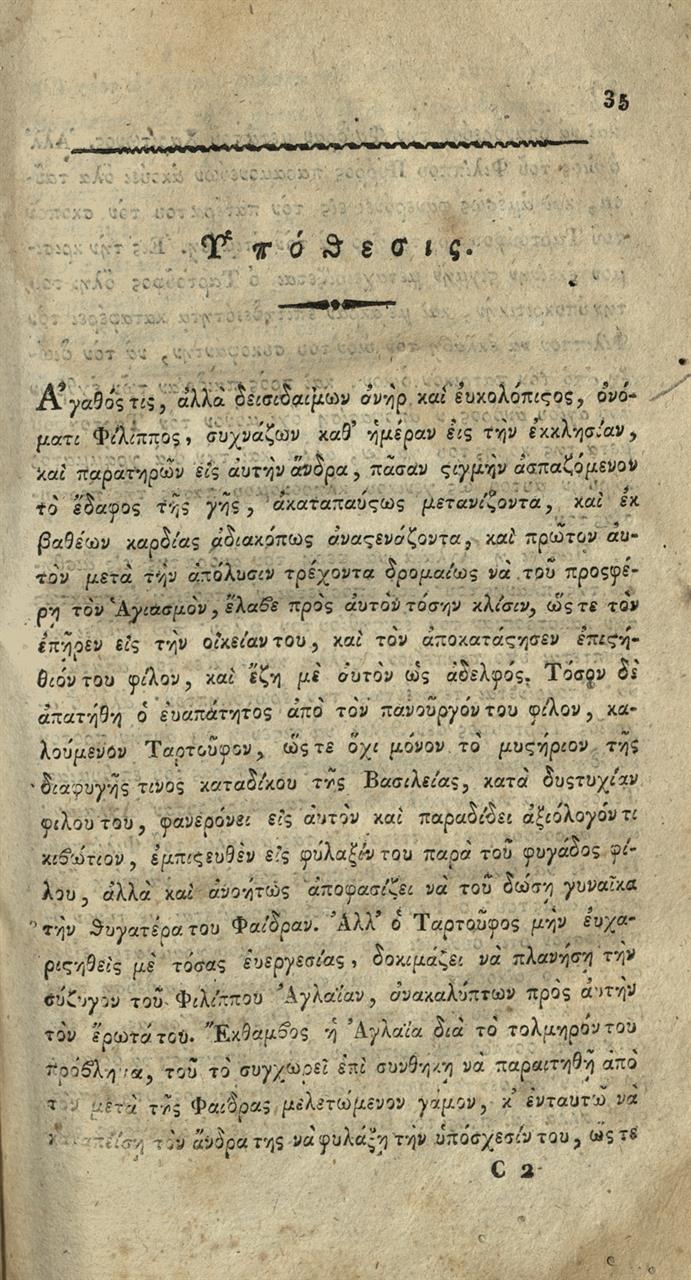 35
Ὑπόθεσις.
Ἀγαθός τις, ἀλλὰ δεισιδαίμων ἀνὴρ καὶ ἐυκολόπιςος, ὀνό-
ματι Φίλιππος, συχνάζων καθ' ἡμέραν ἐις τὴν ἐκκλησίαν,
καὶ παρατηρῶν εἰς ἀυτὴν ἄνδρα, πᾶσαν ςιγμὴν ἀσπαζόμενον
τὸ ἔδαφος τῆς γῆς, ἀκαταπαύςως μετανίζοντα, καὶ ἐκ
βαθέων καρδίας ἀδιακόπως ἀναςενάζοντα, καὶ πρῶτον ἀυ-
τὸν μετὰ τὴν ἀπόλυσιν τρέχοντα δρομαίως νὰ τοῦ προςφέ-
ρη τὸν Ἁγιασμὸν, ἔλαβε πρὸς ἀυτὸν τόσην κλίσιν, ὥς τε τὸν
ἐπῆρεν εἰς τὴν οἰκείαν του, καὶ τὸν ἀποκατάςησεν ἐπιςή-
θιόν του φίλον, καὶ ἔζη μὲ ἀυτὸν ὡς ἀδελφός. Τόσον δὲ
ἀπατήθη ὁ ἐυαπάτητος ἀπὸ τὸν πανοῦργόν του φίλον, κα-
λούμενον Ταρτοῦφον, ὥς τε ὄχι μόνον τὸ μυςήριον τῆς
διαφυγῆς τινος καταδίκου τῆς Βασιλείας, κατὰ δυςτυχίαν
φίλου του, φανερόνει εἰς ἀυτὸν καὶ παραδίδει ἀξιόλογόν τι
κιβώτιον, ἐμπιςευθὲν εἰς φύλαξίν του παρὰ τοῦ φυγάδος φί-
λου, ἀλλὰ καὶ ἀνοήτως ἀποφασίζει νὰ τοῦ δώση γυναῖκα
τὴν θυγατέρα του Φαίδραν. Ἀλλ' ὁ Ταρτοῦφος μὴν ἐυχα-
ριςηθεὶς μὲ τόσας ἐυεργεσίας, δοκιμάζει νὰ πλανήση τὴν
σύζυγον τοῦ Φιλίππου Ἀγλαΐαν, ἀνακαλύπτων πρὸς ἀυτὴν
τὸν ἔρωτά του. Ἔκθαμβος ἡ Ἀγλαΐα διὰ τὸ τολμηρόν του
πρόβλημα, τοῦ τὸ συγχωρεῖ ἐπὶ συνθήκη νὰ παραιτηθῆ ἀπὸ
τὸν μετὰ τῆς Φαίδρας μελετώμενον γάμον, κ' ἐνταυτῶ νὰ
καταπείση τὸν ἄνδρα της νὰ φυλάξη τὴν ὑπόσχεσίν του, ὥς τε
C 2